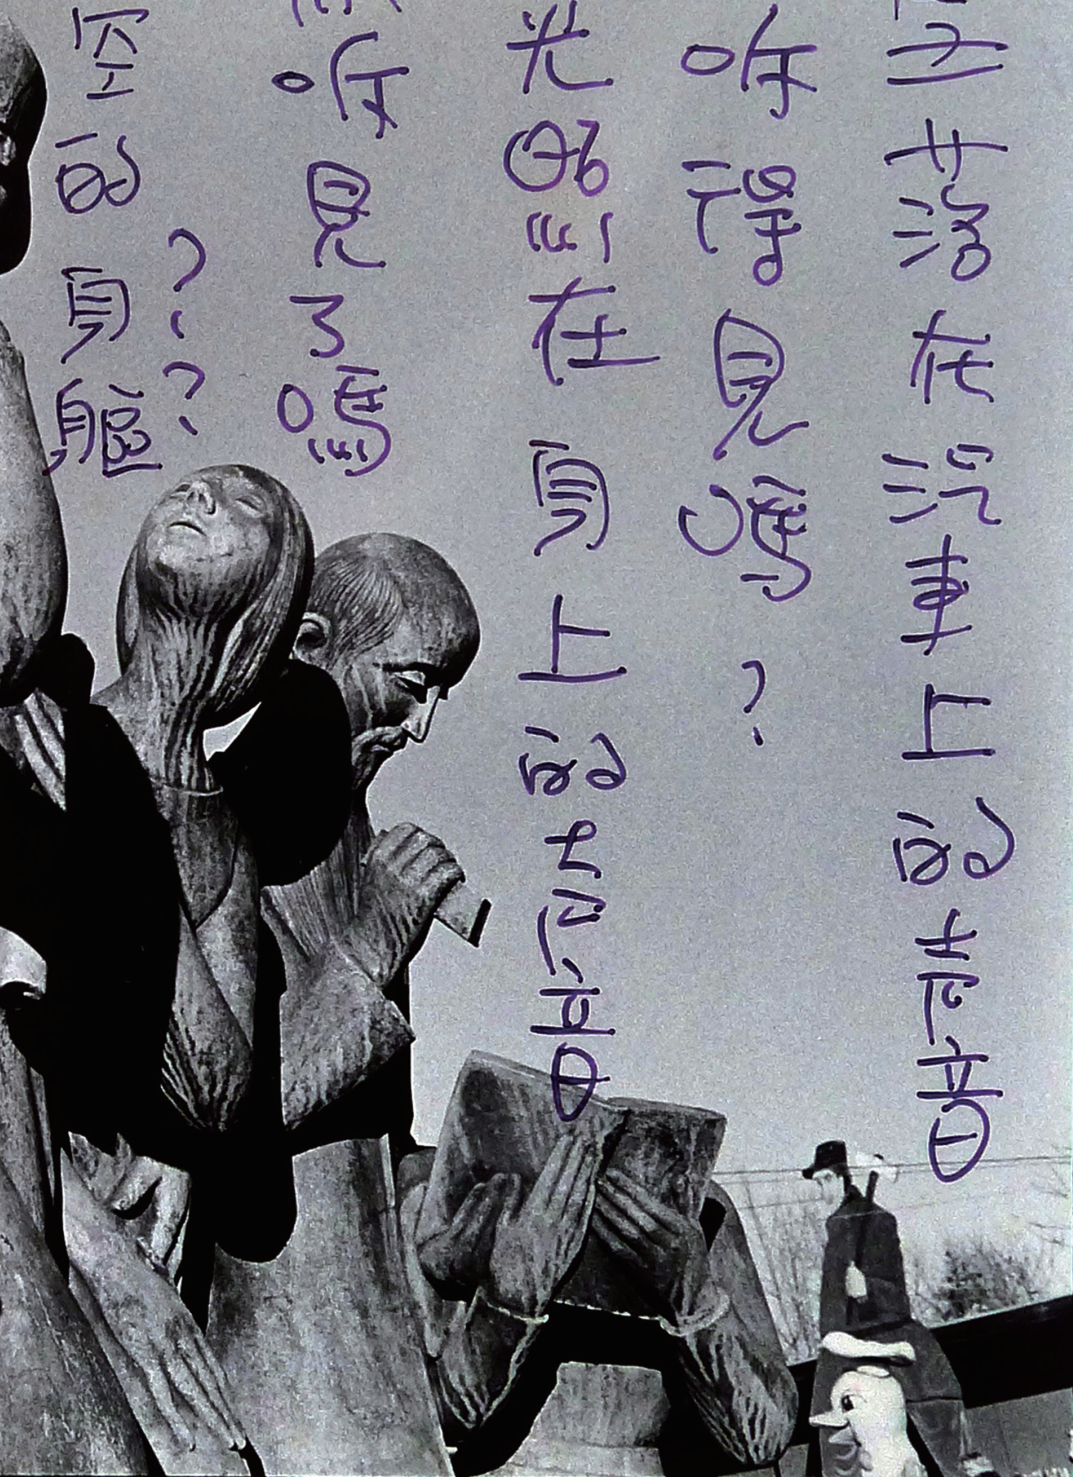 落在汽車上的聲音
听得見嗎?
光照在身上的聲音
听見了嗎
??
空的身軀